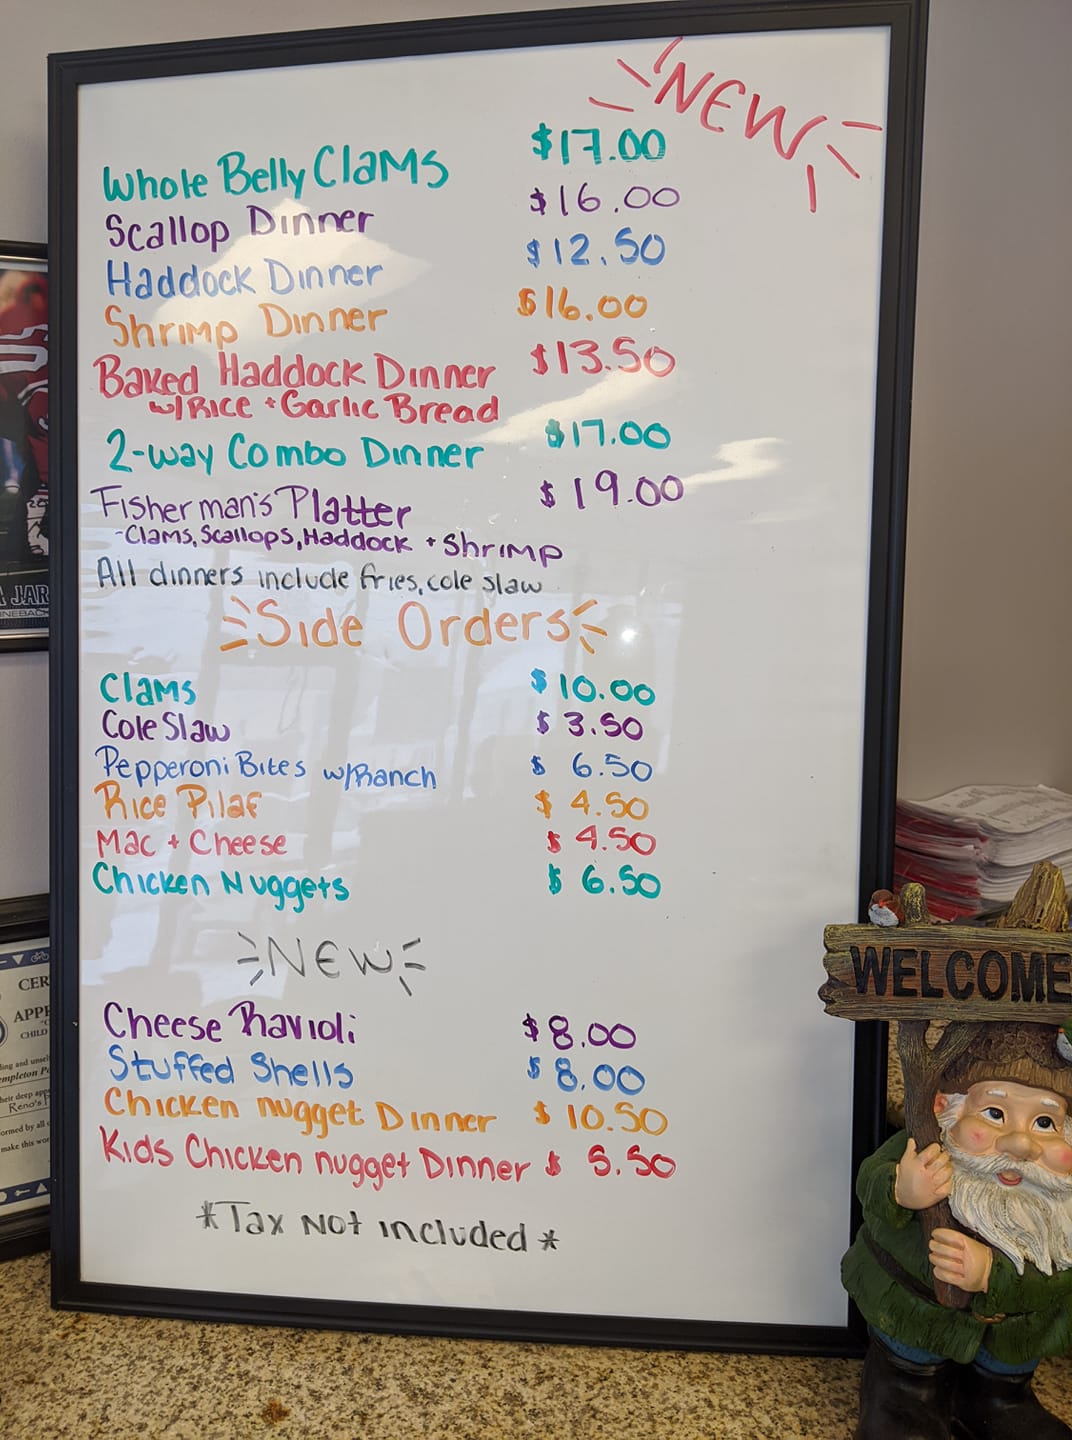 NEW
Whole Belly Clams $17.00
Scallop Dinner $16.00
Haddock Dinner $12.50
Shrimp Dinner $16.00
Baked Haddock Dinner $13.50
w/Rice + Garlic Bread
2-way Combo Dinner $17.00
Fisherman's Platter $19.00
-Clams, Scallops, Haddock + Shrimp
All dinners include fries, cole slaw
Side Orders
Clams $10.00
Cole Slaw $3.50
Pepperoni Bites w/Ranch $6.50
Rice Pilaf $4.50
Mac + Cheese $4.50
Chicken Nuggets $6.50
NEW
Cheese Ravioli $8.00
Stuffed Shells $8.00
Chicken nugget Dinner $10.50
Kids Chicken nugget Dinner $5.50
*Tax Not included*
WELCOME
JAR
CER
APP
CHILD
ing and unsel
empleton
heir deep
Reno's
ormed by all
make this wor